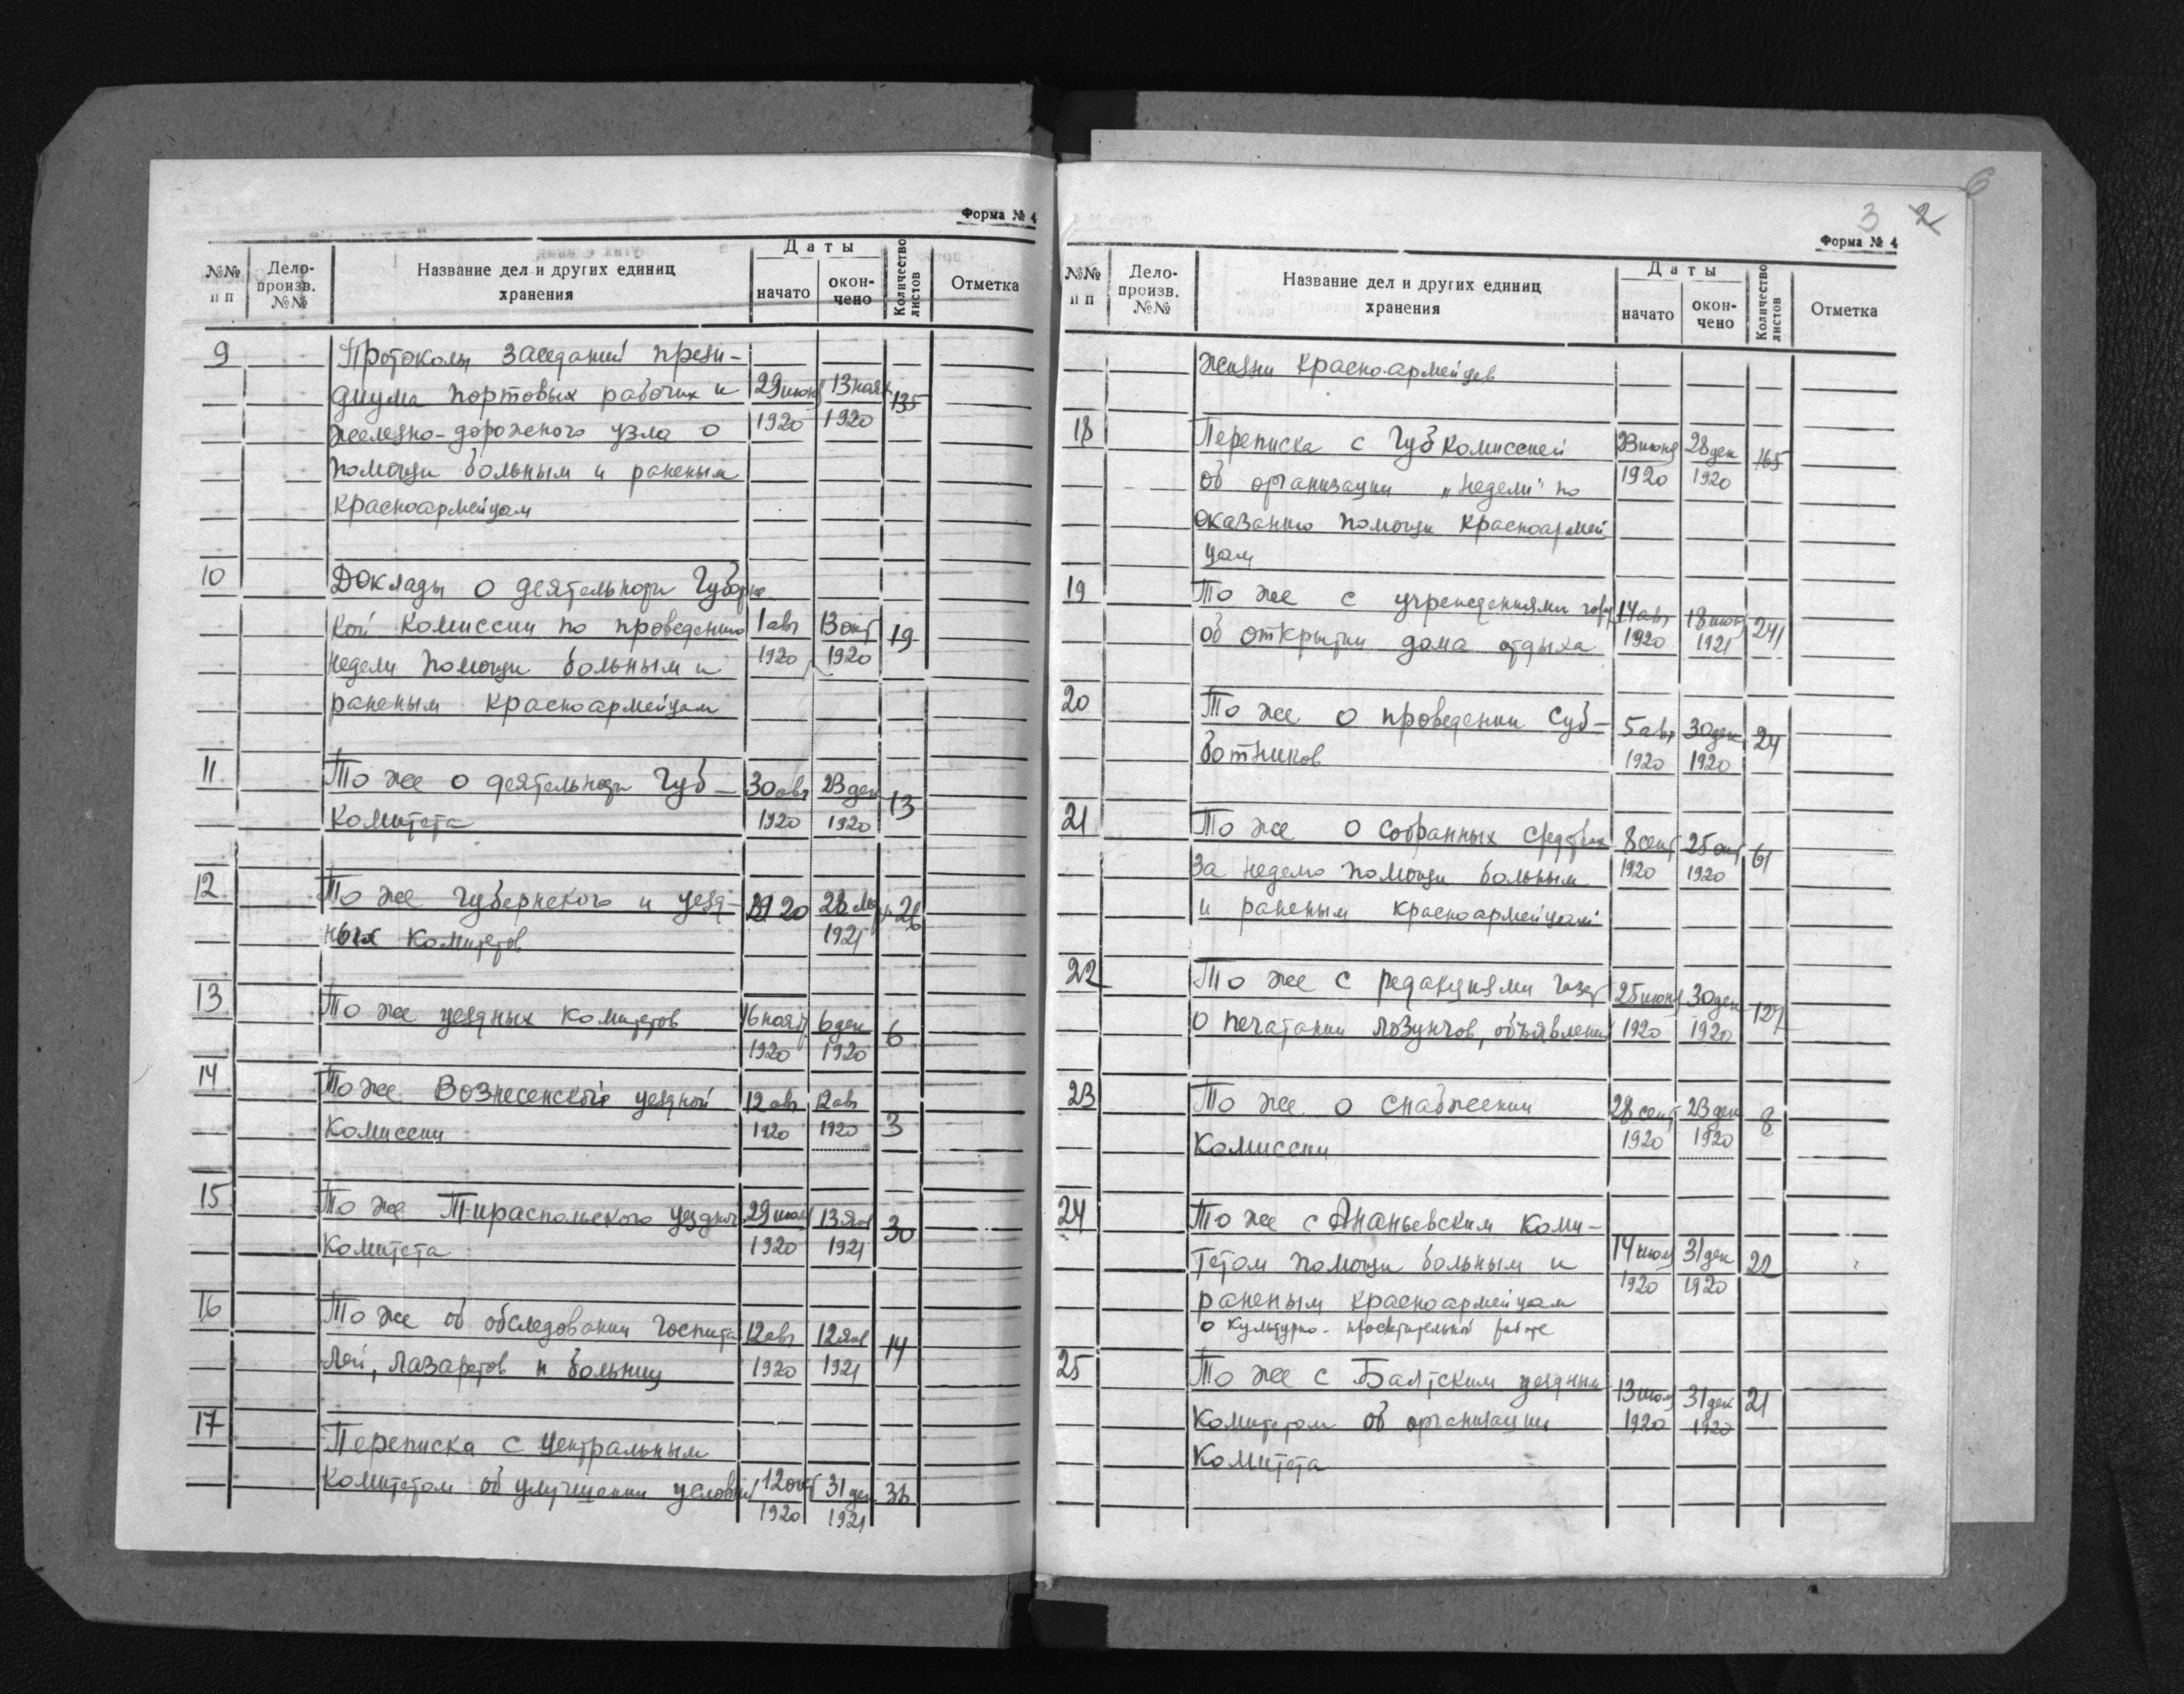 Форма № 4
№№ п п
Дело-произв. №№
Название дел и других единиц хранения
Даты
начато
окон-чено
Количество листов
Отметка
9 Протоколы заседаний прези-
диума портовых рабочих и 29 июня 13 нояб 135
железно-дорожного узла о 1920 1920
помощи больным и раненым
красноармейцам
10 Доклады о деятельности Губернс-
кой комиссии по проведению 1 авг 13 окт 19
недели помощи больным и 1920 1920
раненым красноармейцам
11. То же о деятельности Губ- 30 авг 23 дек 13
комитета 1920 1920
12 То же губернского и уезд- 1920 28 26
ных комитетов 1921
13 То же уездных комитетов 16 нояб 6 дек 6
1920 1920
14 То же Вознесенской уездной 12 авг 12 авг
комиссии 1920 1920 3
15 То же Тираспольского уездного 29 июля 13 янв 30
комитета 1920 1921
16 То же об обследовании госпита 12 авг 12 янв 14
лей, лазаретов и больниц 1920 1921
17 Переписка с центральным
комитетом об улучшении условий 12 окт 31 дек 36
1920 1921
3 2
6
Форма № 4
№№ п п
Дело-произв. №№
Название дел и других единиц хранения
Даты
начато
окон-чено
Количество листов
Отметка
жизни красноармейцев
18 Переписка с Губкомиссией 23 июня 28 дек 165
об организации „недели" по 1920 1920
оказанию помощи красноармей
цам
19 То же с учреждениями 14 авг 18 241
об открытии дома отдыха 1920 1921
20 То же о проведении суб- 5 авг 30 дек 24
ботников 1920 1920
21 То же о собранных средствах 8 сент 25 окт 61
за неделю помощи больным 1920 1920
и раненым красноармейцам
22 То же с редакциями газет 25 июня 30 дек 127
о печатании лозунгов, объявлений 1920 1920
23 То же о снабжении 28 сент 23 дек 8
комиссии 1920 1920
24 То же с Ананьевским коми-
тетом помощи больным и 14 июля 31 дек 22
раненым красноармейцам 1920 1920
о культурно-просветительной работе
25 То же с Балтским уездным 13 июля 31 дек 21
комитетом об организации 1920 1920
комитета